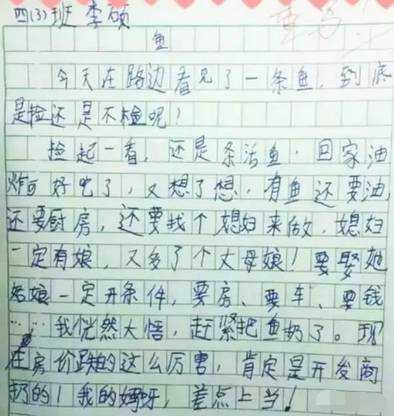 四(3)班 李硕
鱼
今天在路边看见了一条鱼,到底
是捡还是不捡呢!
捡起一看,还是条活鱼.回家油
炸可好吃了,又想了想,有鱼还要油,
还要厨房,还要找个媳妇来做,媳妇
一定有娘,又多了个丈母娘!要娶她
姑娘一定开条件,要房、要车、要钱
……我恍然大悟,赶紧把鱼扔了。现
在房价跌的这么厉害,肯定是开发商
扔的!我的妈呀,差点上当!